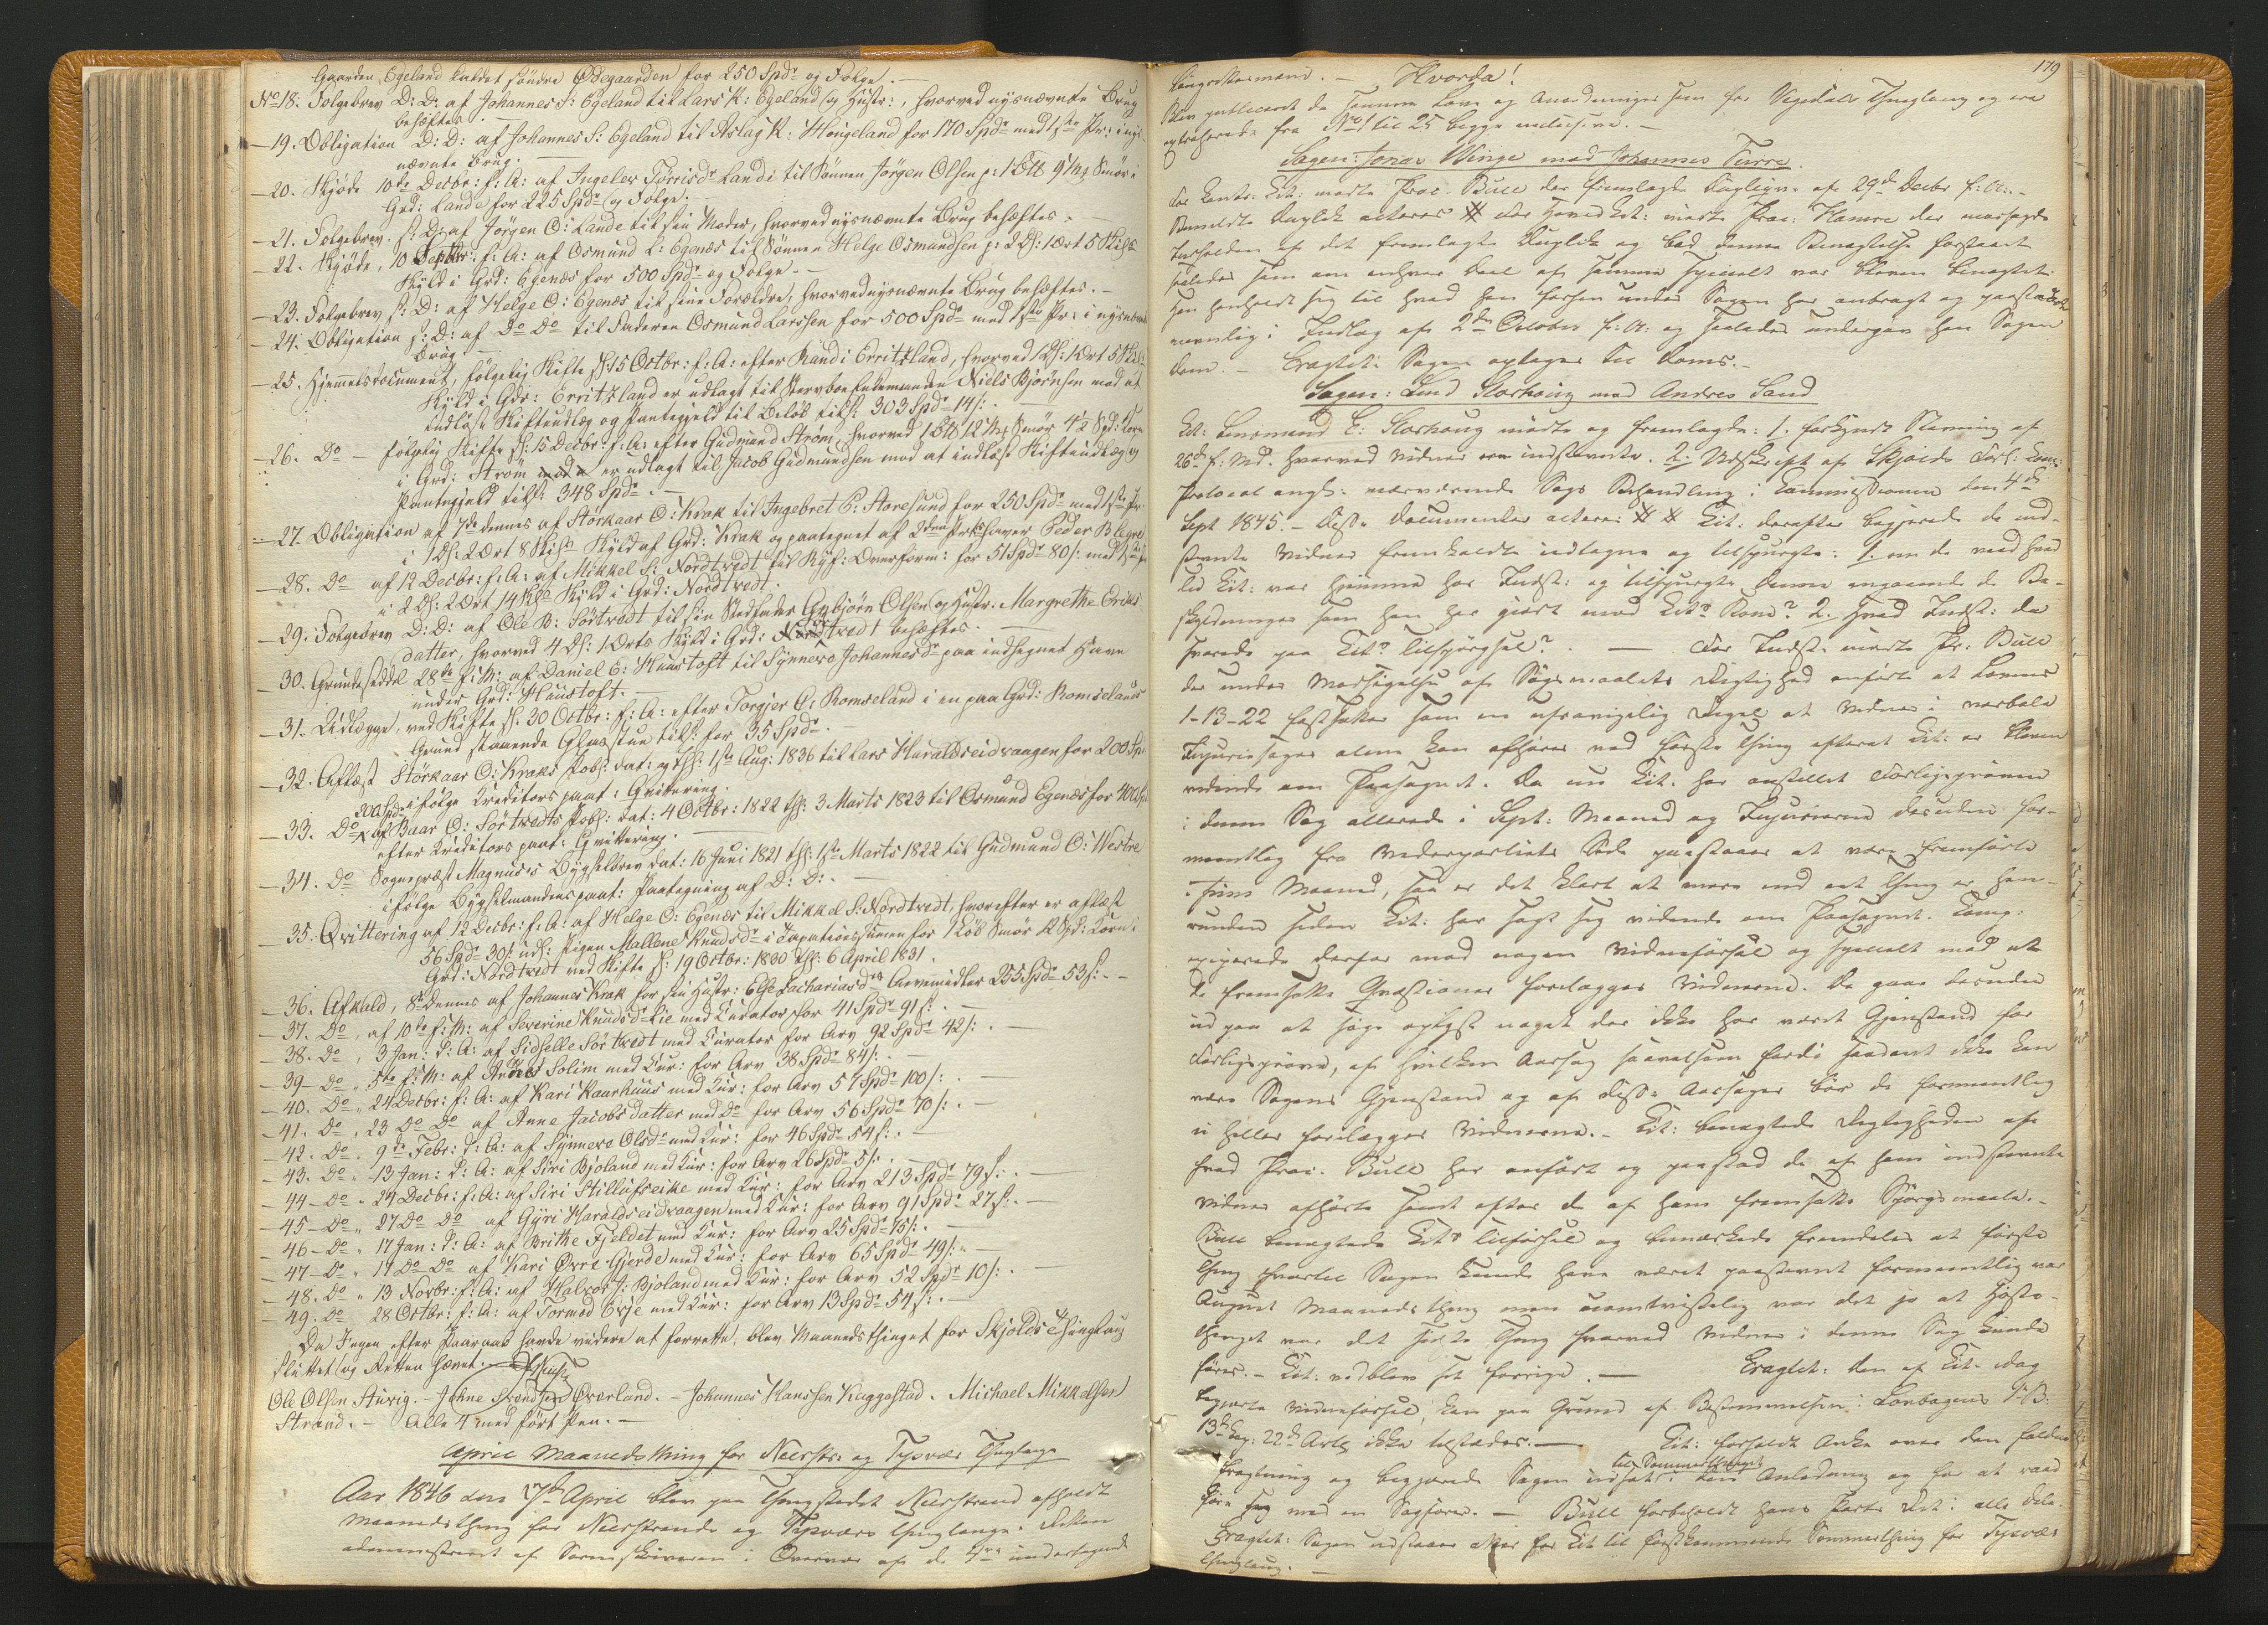 Gaarden Egeland kaldet søndre Ødegaarden for 250 Spdr og Følge. —
No 18. Følgebrev D: D: af Johannes S: Egeland til Lars K: Egeland og Hustr:, hvorved nysnævnte Brug
behæftes. —
— 19. Obligation D: D: af Johannes S: Egeland til Aslag K: Hougeland for 170 Spdr med 1ste Pr: i nys-
nævnte Brug. —
— 20. Skjøde 10de Decbr: f: A: af Ingeler Tørrisdr Lande til Sønnen Jørgen Olsen p: 1 Løb 9 Mk Smør i
Grd: Lande for 225 Spdr og Følge. —
— 21. Følgebrev s: D: af Jørgen O: Lande til sin Moder, hvorved nysnævnte Brug behæftes. —
— 22. Skjøde, 10 Septbr: f: A: af Osmund L: Egenæs til Sønnen Helge Osmundsen p: 2 D: 1 Ort 5 Sk
Skyld i Grd: Egenæs for 500 Spdr og Følge. —
— 23. Følgebrev s: D: af Helge O: Egenæs til sine Forældre, hvorved nysnævnte Brug behæftes. —
— 24. Obligation s: D: af Do Do til Faderen Osmund Larssen for 500 Spdr med 1ste Pr: i nysnævnte
Brug. —
— 25. Hjemmelsdocument, følgelig Skifte sl: 15 Octbr: f: A: efter Knud i Erritsland, hvorved 1 D: 1 Ort 5 Sk:
Skyld i Grd: Erritsland er udlagt til Stervboe Enkemanden Niels Bjørnsen mod at
indløse Skifteudlæg og Pantegjeld til Beløb tils: 303 Spdr 14 s: —
— 26. Do — følgelig Skifte sl: 15 Decbr: f: A: efter Gudmund Strøm, hvorved 1 Løb 12 Mk Smør 4½ Spd: Korn
i Grd: Strøm er udlagt til Jacob Gudmundsen mod at indløse Skifteudlæg og
Pantegjeld tils: 348 Spdr. —
— 27. Obligation af 7de dennes af Størkaar O: Krak til Ingebret P: Aaresund for 250 Spdr med 1ste Pr:
i 1 D: 2 Ort 8 Sk Skyld af Grd: Krak og paategnet af 2den Pr: haver Peder B. Legre
— 28. Do af 12 Decbr: f: A: af Mikkel S: Nordtvedt til Ryf: Overform: for 51 Spdr 80 s: med 1ste Pr:
i 2 D: 2 Ort 14 Sk Skyld i Grd: Nordtvedt.
— 29. Følgebrev D: D: af Ole B: Sørtvedt til sin Stedfader Gybjørn Olsen og Hustr: Margrethe Eriks
datter, hvorved 4 D: 1 Orts Skyld i Grd: Sørtvedt behæftes. —
— 30. Grundeseddel 28de f: M: af Daniel E: Haustoft til Synneve Johannesdr paa indhegnet Have
under Grd: Haustoft. —
— 31. Udlægge, ved Skifte sl: 30 Octbr: f: A: efter Torgjer O: Romseland i en paa Grd: Romseland
Grund staaende Glasstue tils: for 35 Spdr. —
— 32. Aflæst Størkaar O: Kraks Pobl: dat: og thl: 1ste Aug: 1836 til Lars Haraldseidvaagen for 200 Sp
200 Spdr ifølge Kreditors paat: Qvittering.
— 33. Do af Baar O: Sørtvedts Pobl: dat: 4 Octbr: 1822 thl: 3 Marts 1823 til Osmund Egenæs for 400 Sp
efter Kreditors paat: Qvittering. —
— 34. Do Sognepræst Magnus's Bygselbrev dat: 16 Juni 1821 thl: 1ste Marts 1822 til Gudmund O: Westre
ifølge Bygselmandens paat: Paategning af D: D:. —
— 35. Qvittering af 12 Decbr: f: A: af Helge O: Egenæs til Mikkel S: Nordtvedt, hvorefter er aflæst
56 Spdr 30 s: udl: Pigen Mallene Knudsdr i Taxationssummen for 1 Løb Smør 12 Spd: Korn i
Grd: Nordtvedt ved Skifte sl: 19 Octbr: 1830 thl: 6 April 1831.
— 36. Afkald, 8de dennes af Johannes Krak for sin Hustr: Else Zachariasdrs Arvemidler 255 Spdr 53 s: —
— 37. Do, af 10de f: M: af Severine Knudsdr Lie med Curator for 41 Spdr 91 s: —
— 38. Do, 3 Jan: d: A: af Sidselle Sørtvedt med Curator for Arv 92 Spdr 42 s: —
— 39 — Do „ 5te f: M: af Anders Solim med Cur: for Arv 38 Spdr 84 s: —
— 40. Do „ 24 Decbr: f: A: af Kari Kaarhuus med Cur: for Arv 57 Spdr 100 s: —
— 41. Do „ 23 Do Do af Anne Jacobsdatter med Do for Arv 56 Spdr 70 s: —
— 42. Do „ 9de Febr: d: A: af Synneve Olsdr med Cur: for 46 Spdr 54 s: —
— 43. Do „ 13 Jan: d: A: af Siri Bjoland med Cur: for Arv 26 Spdr 5 s: —
— 44 — Do „ 24 Decbr: f: A: af Siri Stillufseike med Cur: for Arv 213 Spdr 79 s: —
— 45 — Do „ 27 Do Do af Gyri Haraldseidvaagen med Cur: for Arv 91 Spdr 27 s: —
— 46 — Do „ 17 Jan: d: A: af Brithe Fjeldet med Cur: for Arv 25 Spdr 75 s: —
— 47 — Do „ 17 Do Do af Kari Øvre-Gjerde med Cur: for Arv 65 Spdr 49 s: —
— 48. Do „ 13 Novbr: f: A: af Halvor J: Bjoland med Cur: for Arv 52 Spdr 10 s: —
— 49. Do 28 Octbr: f: A: af Tormod Erje med Cur: for Arv 13 Spdr 54 s: —
Da Ingen efter Paaraab havde videre at forrette, blev Maanedsthinget for Skjolds Thinglaug
sluttet og Retten hævet. —
Ole Olsen Aurig. — Johne Svendsen Øverland. — Johannes Hanssen Kaggestad. Michael Mikkelsen
Strand. — Alle 4 med ført Pen. —
April Maanedsthing for Neerstr: og Tysvær Thinglauge
Aar 1846 den 17de April blev paa Thingstedet Neerstrand afholdt
Maanedsthing for Neerstrands og Tysværs Thinglauge. Retten
administreret af Sorenskriveren i Overvær af de 4re undertegnede
179
Laugrettesmænd. — Hvorda!
Blev publiceret de samme Love og Anordninger som for Vigedals Thinglaug og ere
extraherede fra No 1 til 25 begge inclusive. —
Sagen: Jonas Winge mod Johannes Førre.
For Contr: Cit: mødte Proc. Bull der fremlagde Duplique af 29de Decbr f: A: —
Bemeldte Duplik acteres # For Hoved Cit: mødte Proc: Hamre der modsagde
Indholden af det fremlagte Duplik og bad denne Benægtelse forstaaet
saaledes som om enhver Deel af samme specielt var bleven benægtet.
Han henholdt sig til hvad han forhen under Sagen har anbragt og paastaaet
navnlig i Indlæg af 2den October f: A: og saaledes indgav han Sagen
Dom. — Eragtet: Sagen optages til Doms. —
Sagen: Lmd Storhoug mod Andres Sand
Cit: Lensmand E: Storhoug mødte og fremlagde: 1. forkyndt Stævning af
26de f: Md. hvorved Vidner ere indstævnte. 2. Udskrift af Skjolds Forl: Com:
Protocol angl: nærværende Sags Behandling i Commissionen den 4de
Sept 1845. — Disse Documenter acteres: # # Cit: derefter begjerede de ind-
stævnte Vidner fremkaldte edtagne og tilspurgte: 1. om de veed hvad
Cit: var hjemme hos Indst: og tilspurgte denne angaaende de Be-
skyldninger som han har giort mod Cits Kone? 2. Hvad Indst: da
svarede paa Cits Tilspørgsel? — For Indst: mødte Pr. Bull
der under Modsigelse af Søgsmaalets Rigtighed anførte at Lovens
1-13-22 fastsætter som en ufravigelig Regel at Vidner i verbale
Injuriesager alene kan afhøres ved første Thing efterat Cit: er bleven
vidende om Paasagnet. Da nu Cit. har anstillet Forligsprøven
i denne Sag allerede i Sept: Maaned og Injurierne desuden for-
mentlig fra Vederpartiets Side paastaaes at være fremførte
i Juni Maaned, saa er det klart at mere end eet Thing er hen-
runden siden Cit: har sagt sig vidende om Paasagnet. Comp:
protesterede derfor mod nogen Vidneførsel og specielt mod at
de fremsatte Qvæstioner forelægges Vidnerne. De gaae desuden
ud paa at søge oplyst noget der ikke har været Gjenstand for
Forligsprøve, af hvilken Aarsag saavelsom fordi saadant ikke kan
være Sagens Gjenstand og af disse Aarsager bør de formentlig
ei heller forelægges Vidnerne. — Cit: benægtede Rigtigheden af
hvad Proc. Bull har anført og paastod de af ham indstævnte
Vidner afhørte samt efter de af ham fremsatte Spørgsmaale. —
Bull benægtede Cits Tilførsel og bemærkede fremdeles at første
Thing hvortil Sagen kunde have været paastævnt formeentlig var
August Maaneds Thing men uomtvistelig var det jo at Høste-
thinget var det første Thing hvorved Vidner i denne Sag kunde
føres. — Cit: vedblev sit forrige. — Eragtet: Den af Cit: idag
begjærte Vidneførsel, kan paa Grund af Bestemmelsen i Lovbogens 1 B:
13de Cap: 22de Artl ikke tilstædes. — Cit: forholdt Anke over den faldne
til Sommerthinget
Eragtning og begjærede Sagen udsat i den Anledning og for at raad
føre sig med en Sagfører. — Bull forbeholdt hans Parts Ret i alle Dele.
Eragtet: Sagen udstaaer efter for Cit til førstkommende Sommerthing for Tysvær
Thinglaug. —